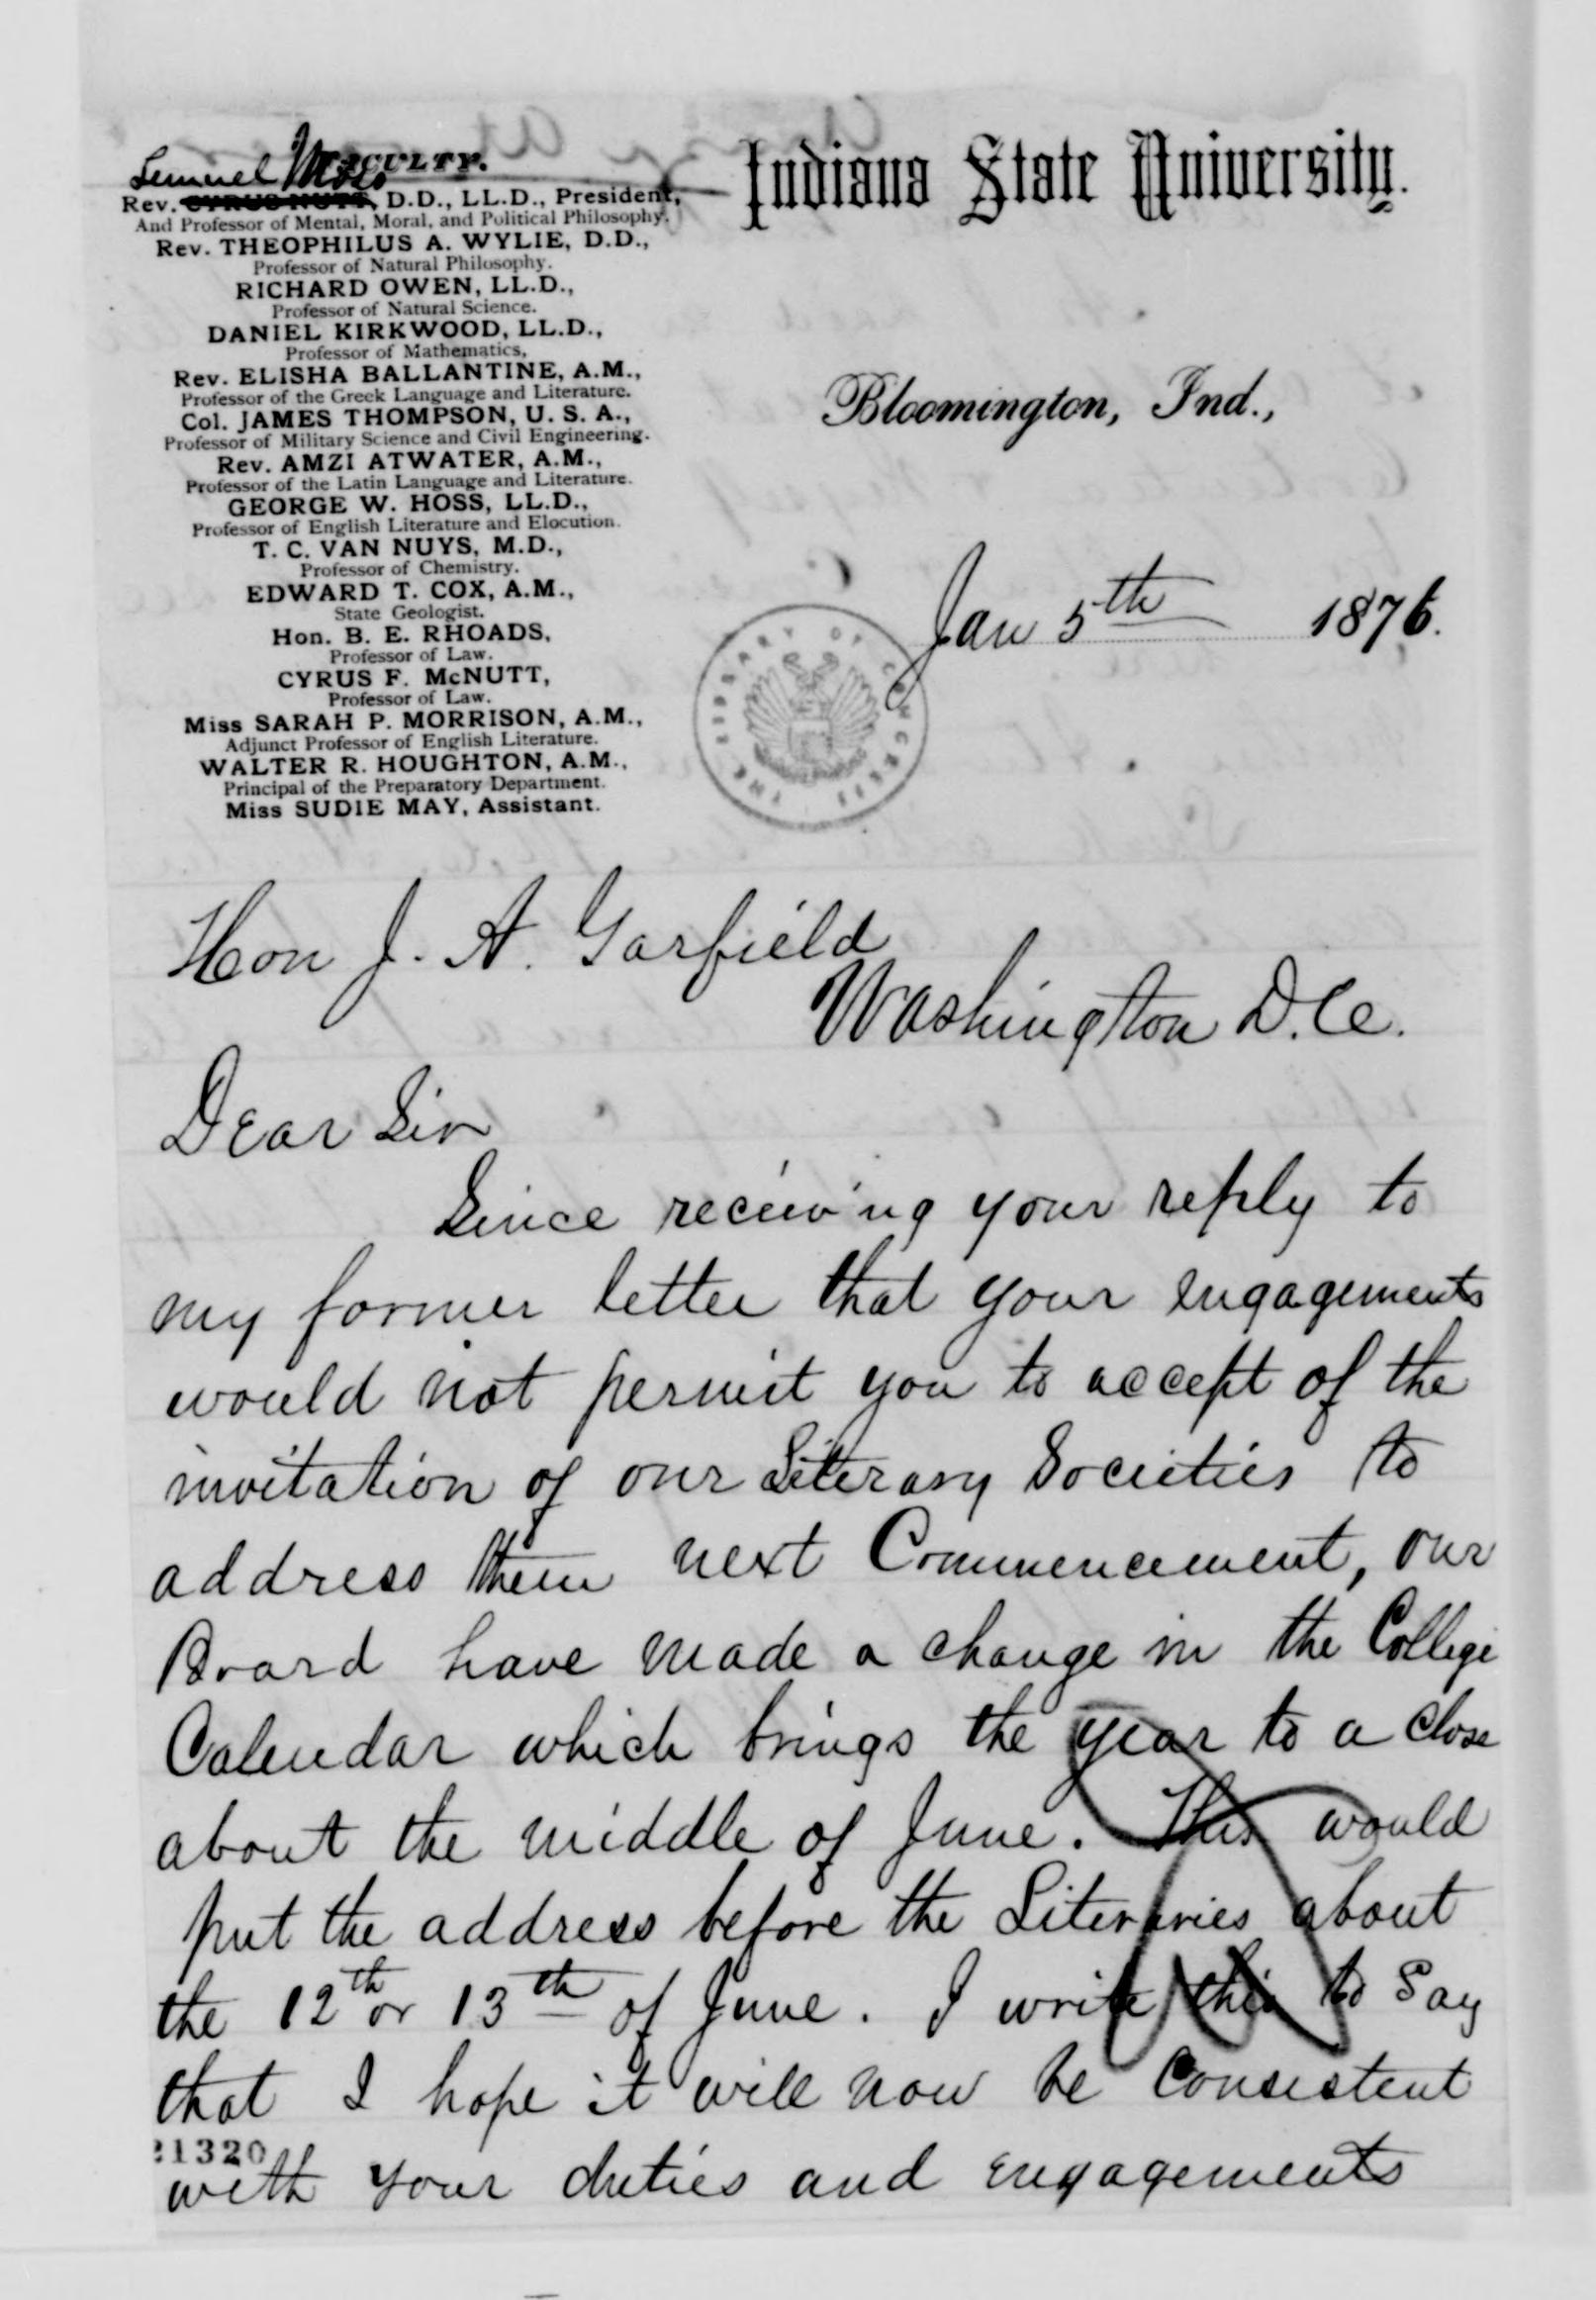 FACULTY.
Lemuel Moss
Rev. CYRUS NUTT, D.D., LL.D., President,
And Professor of Mental, Moral, and Political Philosophy.
Rev. THEOPHILUS A. WYLIE, D.D.,
Professor of Natural Philosophy.
RICHARD OWEN, LL.D.,
Professor of Natural Science.
DANIEL KIRKWOOD, LL.D.,
Professor of Mathematics,
Rev. ELISHA BALLANTINE, A.M.,
Professor of the Greek Language and Literature.
Col. JAMES THOMPSON, U. S. A.,
Professor of Military Science and Civil Engineering.
Rev. AMZI ATWATER, A.M.,
Professor of the Latin Language and Literature.
GEORGE W. HOSS, LL.D.,
Professor of English Literature and Elocution.
T. C. VAN NUYS, M.D.,
Professor of Chemistry.
EDWARD T. COX, A.M.,
State Geologist.
Hon. B. E. RHOADS,
Professor of Law.
CYRUS F. McNUTT,
Professor of Law.
Miss SARAH P. MORRISON, A.M.,
Adjunct Professor of English Literature.
WALTER R. HOUGHTON, A.M.,
Principal of the Preparatory Department.
Miss SUDIE MAY, Assistant.
Indiana State University.
Bloomington, Ind.,
Jan 5th 1876.
THE LIBRARY OF CONGRESS
Hon J. A. Garfield
Washington D.C.
Dear Sir
Since receiving your reply to
my former letter that your engagements
would not permit you to accept of the
invitation of our Literary Societies to
address them next Commencement, our
Board have made a change in the College
Calendar which brings the year to a close
about the middle of June. This would
put the address before the Literaries about
the 12th or 13th of June. I write this to say
that I hope it will now be consistent
21320
with your duties and engagements